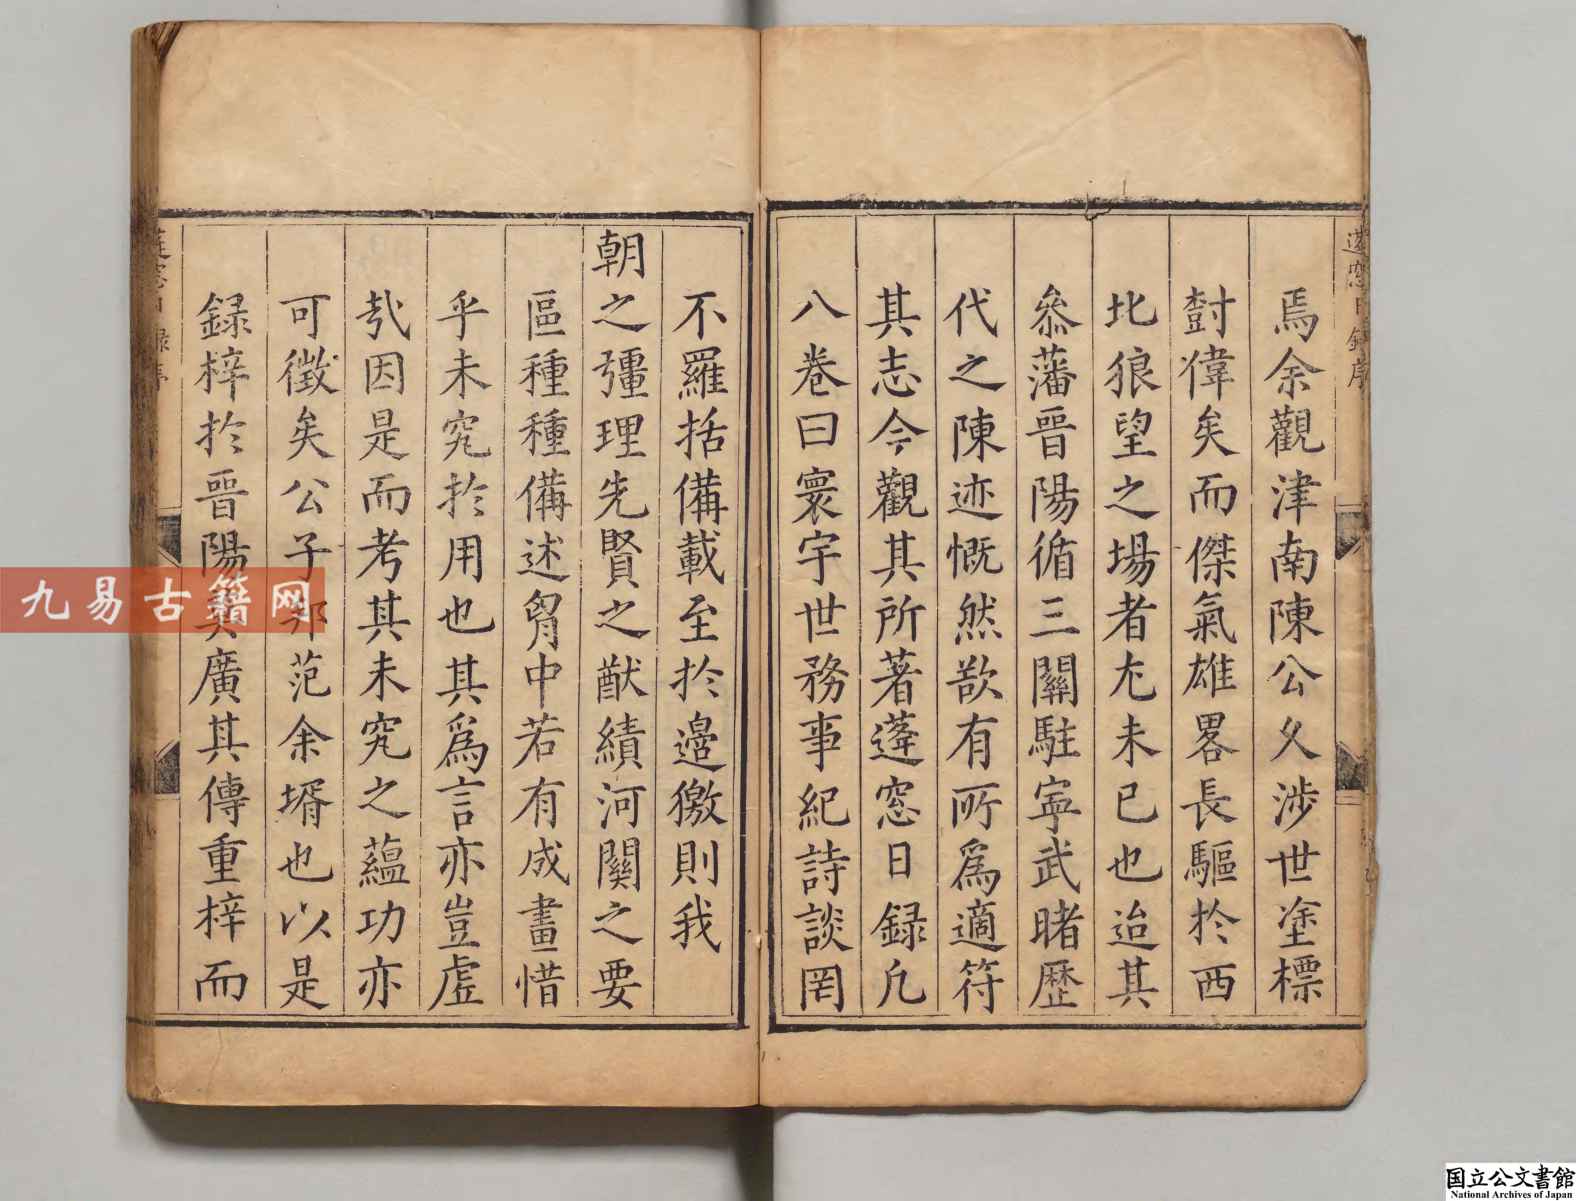 焉余觀津南陳公久涉世塗標
樹偉矣而傑氣雄畧長驅於西
北狼望之場者尢未已也迨其
叅藩晉陽循三關駐寧武睹歷
代之陳迹慨然歆有所爲適符
其志今觀其所著蓬窓日録凢
八卷曰寰宇世務事紀詩談罔
不羅括備載至於邉徼則我
朝之彊理先賢之猷績河關之要
區種種備述胷中若有成畫惜
乎未究於用也其爲言亦豈虛
㢤因是而考其未究之蘊功亦
可徵矣公子鄂范余壻也以是
録梓於晉陽奚廣其傳重梓而
九易古籍网
国立公文書館
National Archives of Japan